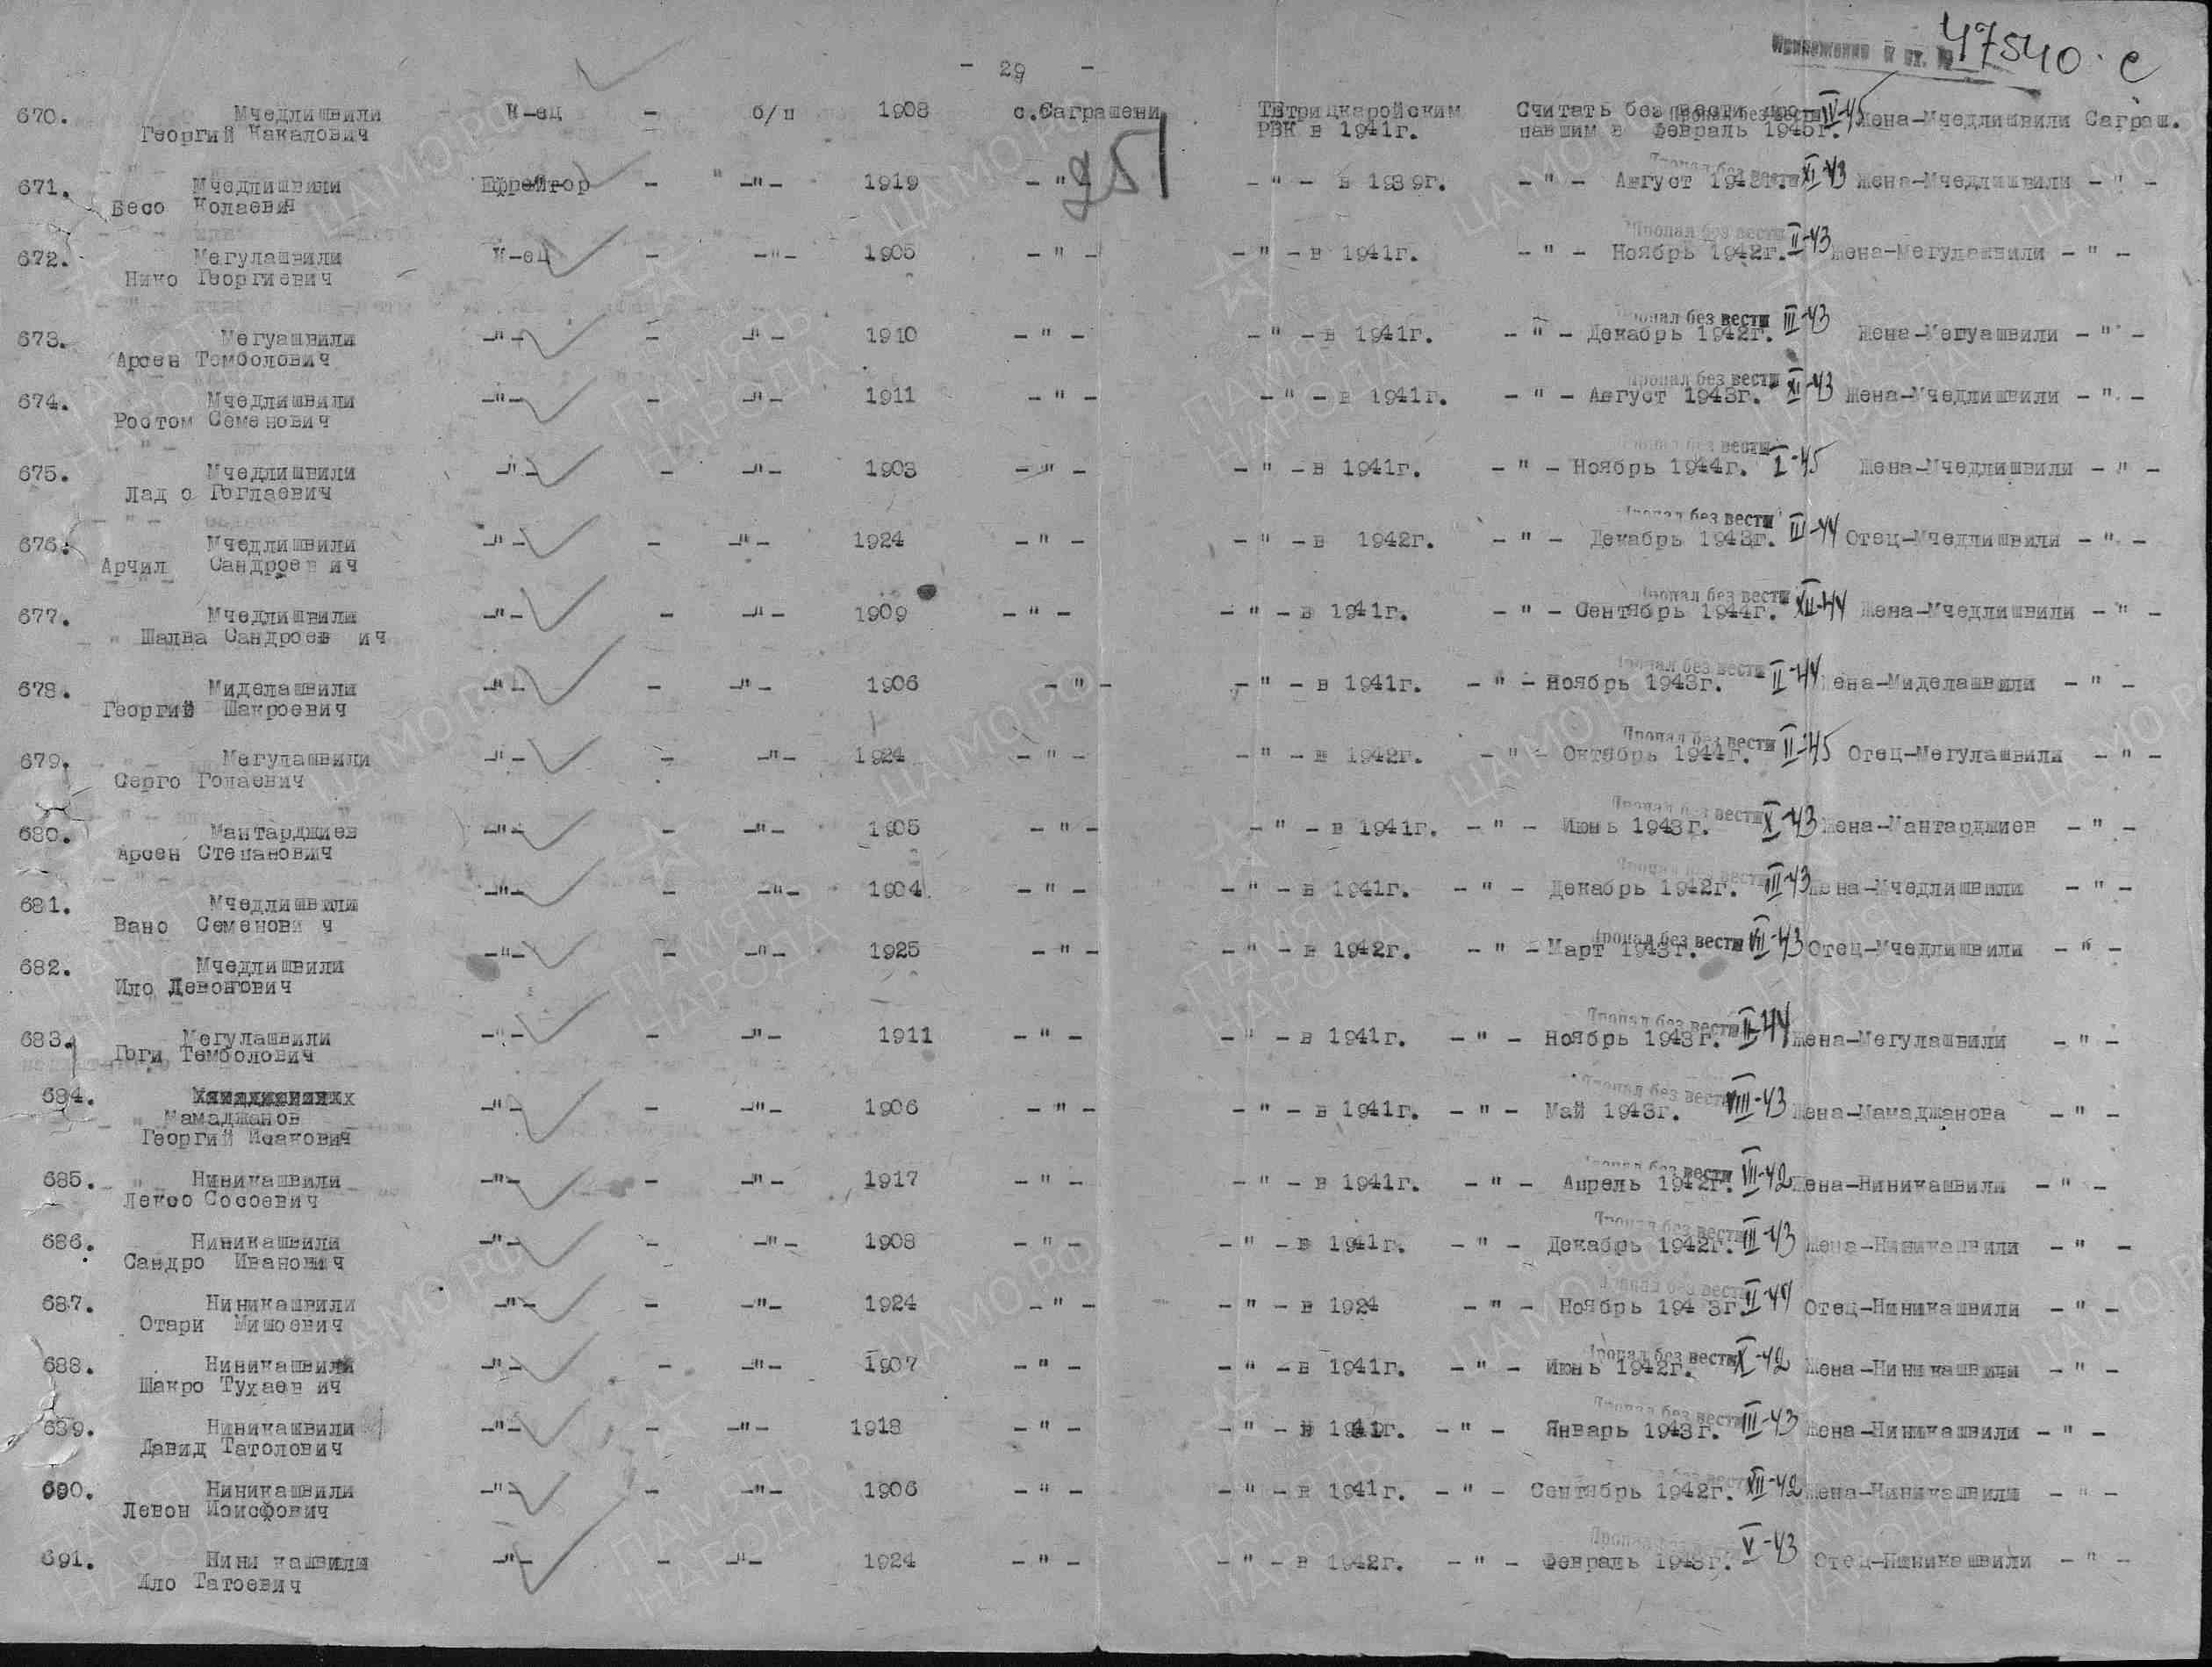 - 29 -
47540 с
251
670. Мчедлишвили К-ец - б/п 1908 с.Саграшени Тетрицкаройским Считать без вести про- IV-45 Жена-Мчедлишвили Саграш.
Георгий Какалович РВК в 1941г. павшим в февраль 1945г.
671. Мчедлишвили Ефрейтор - -"- 1919 -"- -"- в 1939г. -"- Август 1943г. XI-43 Жена-Мчедлишвили -"-
Бесо Колаевич
672. Мегулашвили К-ец - -"- 1905 -"- -"- в 1941г. -"- Ноябрь 1942г. II-43 Жена-Мегулашвили -"-
Нико Георгиевич
673. Мегуашвили -"- - -"- 1910 -"- -"- в 1941г. -"- Декабрь 1942г. Пропал без вести III-43 Жена-Мегуашвили -"-
Арсен Темболович
674. Мчедлишвили -"- - -"- 1911 -"- -"- в 1941г. -"- Август 1943г. Пропал без вести XI-43 Жена-Мчедлишвили -"-
Ростом Семенович
675. Мчедлишвили -"- - -"- 1903 -"- -"- в 1941г. -"- Ноябрь 1944г. I-45 Жена-Мчедлишвили -"-
Лад о Гоглаевич
676. Мчедлишвили -"- - -"- 1924 -"- -"- в 1942г. -"- Декабрь 1943г. без вести III-44 Отец-Мчедлишвили -"-
Арчил Сандроев ич
677. Мчедлишвили -"- - -"- 1909 -"- -"- в 1941г. -"- Сентябрь 1944г. Пропал без вести XII-44 Жена-Мчедлишвили -"-
Шалва Сандроев ич
678. Миделашвили -"- - -"- 1906 -"- -"- в 1941г. -"- Ноябрь 1943г. Пропал без вести II-44 Жена-Миделашвили -"-
Георгий Шакроевич
679. Мегулашвили -"- - -"- 1924 -"- -"- в 1942г. -"- Октябрь 1944г. Пропал без вести II-45 Отец-Мегулашвили -"-
Серго Голаевич
680. Мантарджиев -"- - -"- 1905 -"- -"- в 1941г. -"- Июнь 1943г. Пропал без вести X-43 Жена-Мантарджиев -"-
Арсен Степанович
681. Мчедлишвили -"- - -"- 1904 -"- -"- в 1941г. -"- Декабрь 1942г. III-43 Жена-Мчедлишвили -"-
Вано Семенови ч
682. Мчедлишвили -"- - -"- 1925 -"- -"- в 1942г. -"- Март 1943г. Пропал без вести VII-43 Отец-Мчедлишвили -"-
Ило Левонович
683. Мегулашвили -"- - -"- 1911 -"- -"- в 1941г. -"- Ноябрь 1943г. Пропал без вести II-44 Жена-Мегулашвили -"-
Гоги Темболович
684. -"- - -"- 1906 -"- -"- в 1941г. -"- Май 1943г. Пропал без вести VIII-43 Жена-Мамаджанова -"-
Мамаджанов
Георгий Исакович
685. Ниникашвили -"- - -"- 1917 -"- -"- в 1941г. -"- Апрель 1942г. Пропал без вести VII-42 Жена-Ниникашвили -"-
Лексо Сосоевич
686. Ниникашвили -"- - -"- 1908 -"- -"- в 1941г. -"- Декабрь 1942г. Пропал без вести III-43 Жена-Ниникашвили -"-
Сандро Иванович
687. Ниникашвили -"- - -"- 1924 -"- -"- в 1924 -"- Ноябрь 194 3г. II-44 Отец-Ниникашвили -"-
Отари Мишоевич
688. Ниникашвили -"- - -"- 1907 -"- -"- в 1941г. -"- Июнь 1942г. Пропал без вести X-42 Жена-Ниникашвили -"-
Шакро Тухаев ич
689. Ниникашвили -"- - -"- 1918 -"- -"- в 1941г. -"- Январь 1943г. Пропал без вести III-43 Жена-Ниникашвили -"-
Давид Татолович
690. Ниникашвили -"- - -"- 1906 -"- -"- в 1941г. -"- Сентябрь 1942г. XII-42 Жена-Ниникашвили -"-
Левон Иоисфович
691. Нини кашвили -"- - -"- 1924 -"- -"- в 1942г. -"- Февраль 1943г. V-43 Отец-Ниникашвили -"-
Ило Татоевич